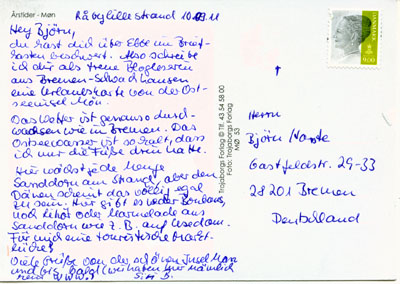 Årstider - Møn
Råbylille strand 10.09.11
Hey Björn,
du hast dich über Ebbe im Brief-
kasten beschwert. Also schreibe
ich dir als treue Blogleserin
aus Bremen-Schwachhausen
eine Urlaubskarte von der Ost-
seeinsel Møn.
Das Wetter ist genauso durch-
wachsen wie in Bremen. Das
Ostseewasser ist so kalt, dass
ich nur die Füße drin hatte.
Hier wächst jede Menge
Sanddorn am Strand, aber den
Dänen scheint das völlig egal
zu sein. Hier gibt es weder Bonbons,
noch Likör oder Marmelade aus
Sanddorn wie z.B. auf Usedom.
Für mich eine touristische Markt-
lücke!
Viele Grüße von der schönen Insel Møn
und bis bald
Trojaborgs Forlag Ø Tlf. 43 54 58 00
Foto: Trojaborgs Forlag
MØ 53
9.00
Herrn
Björn
Gastfeldstr. 29-33
28201 Bremen
Deutschland